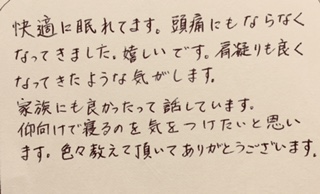 快適に眠れてます。頭痛にもならなく
なってきました。嬉しいです。肩凝りも良く
なってきたような気がします。
家族にも良かったって話しています。
仰向けで寝るのを気をつけたいと思い
ます。色々教えて頂いてありがとうございます。